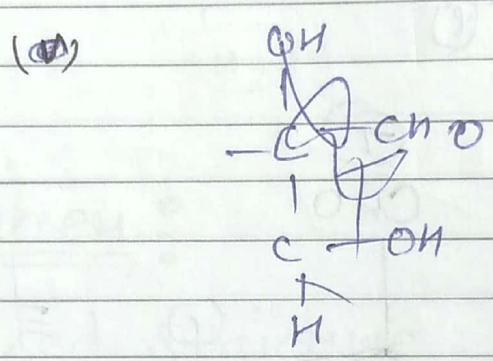 (v) OH
C CHO
C OH
H